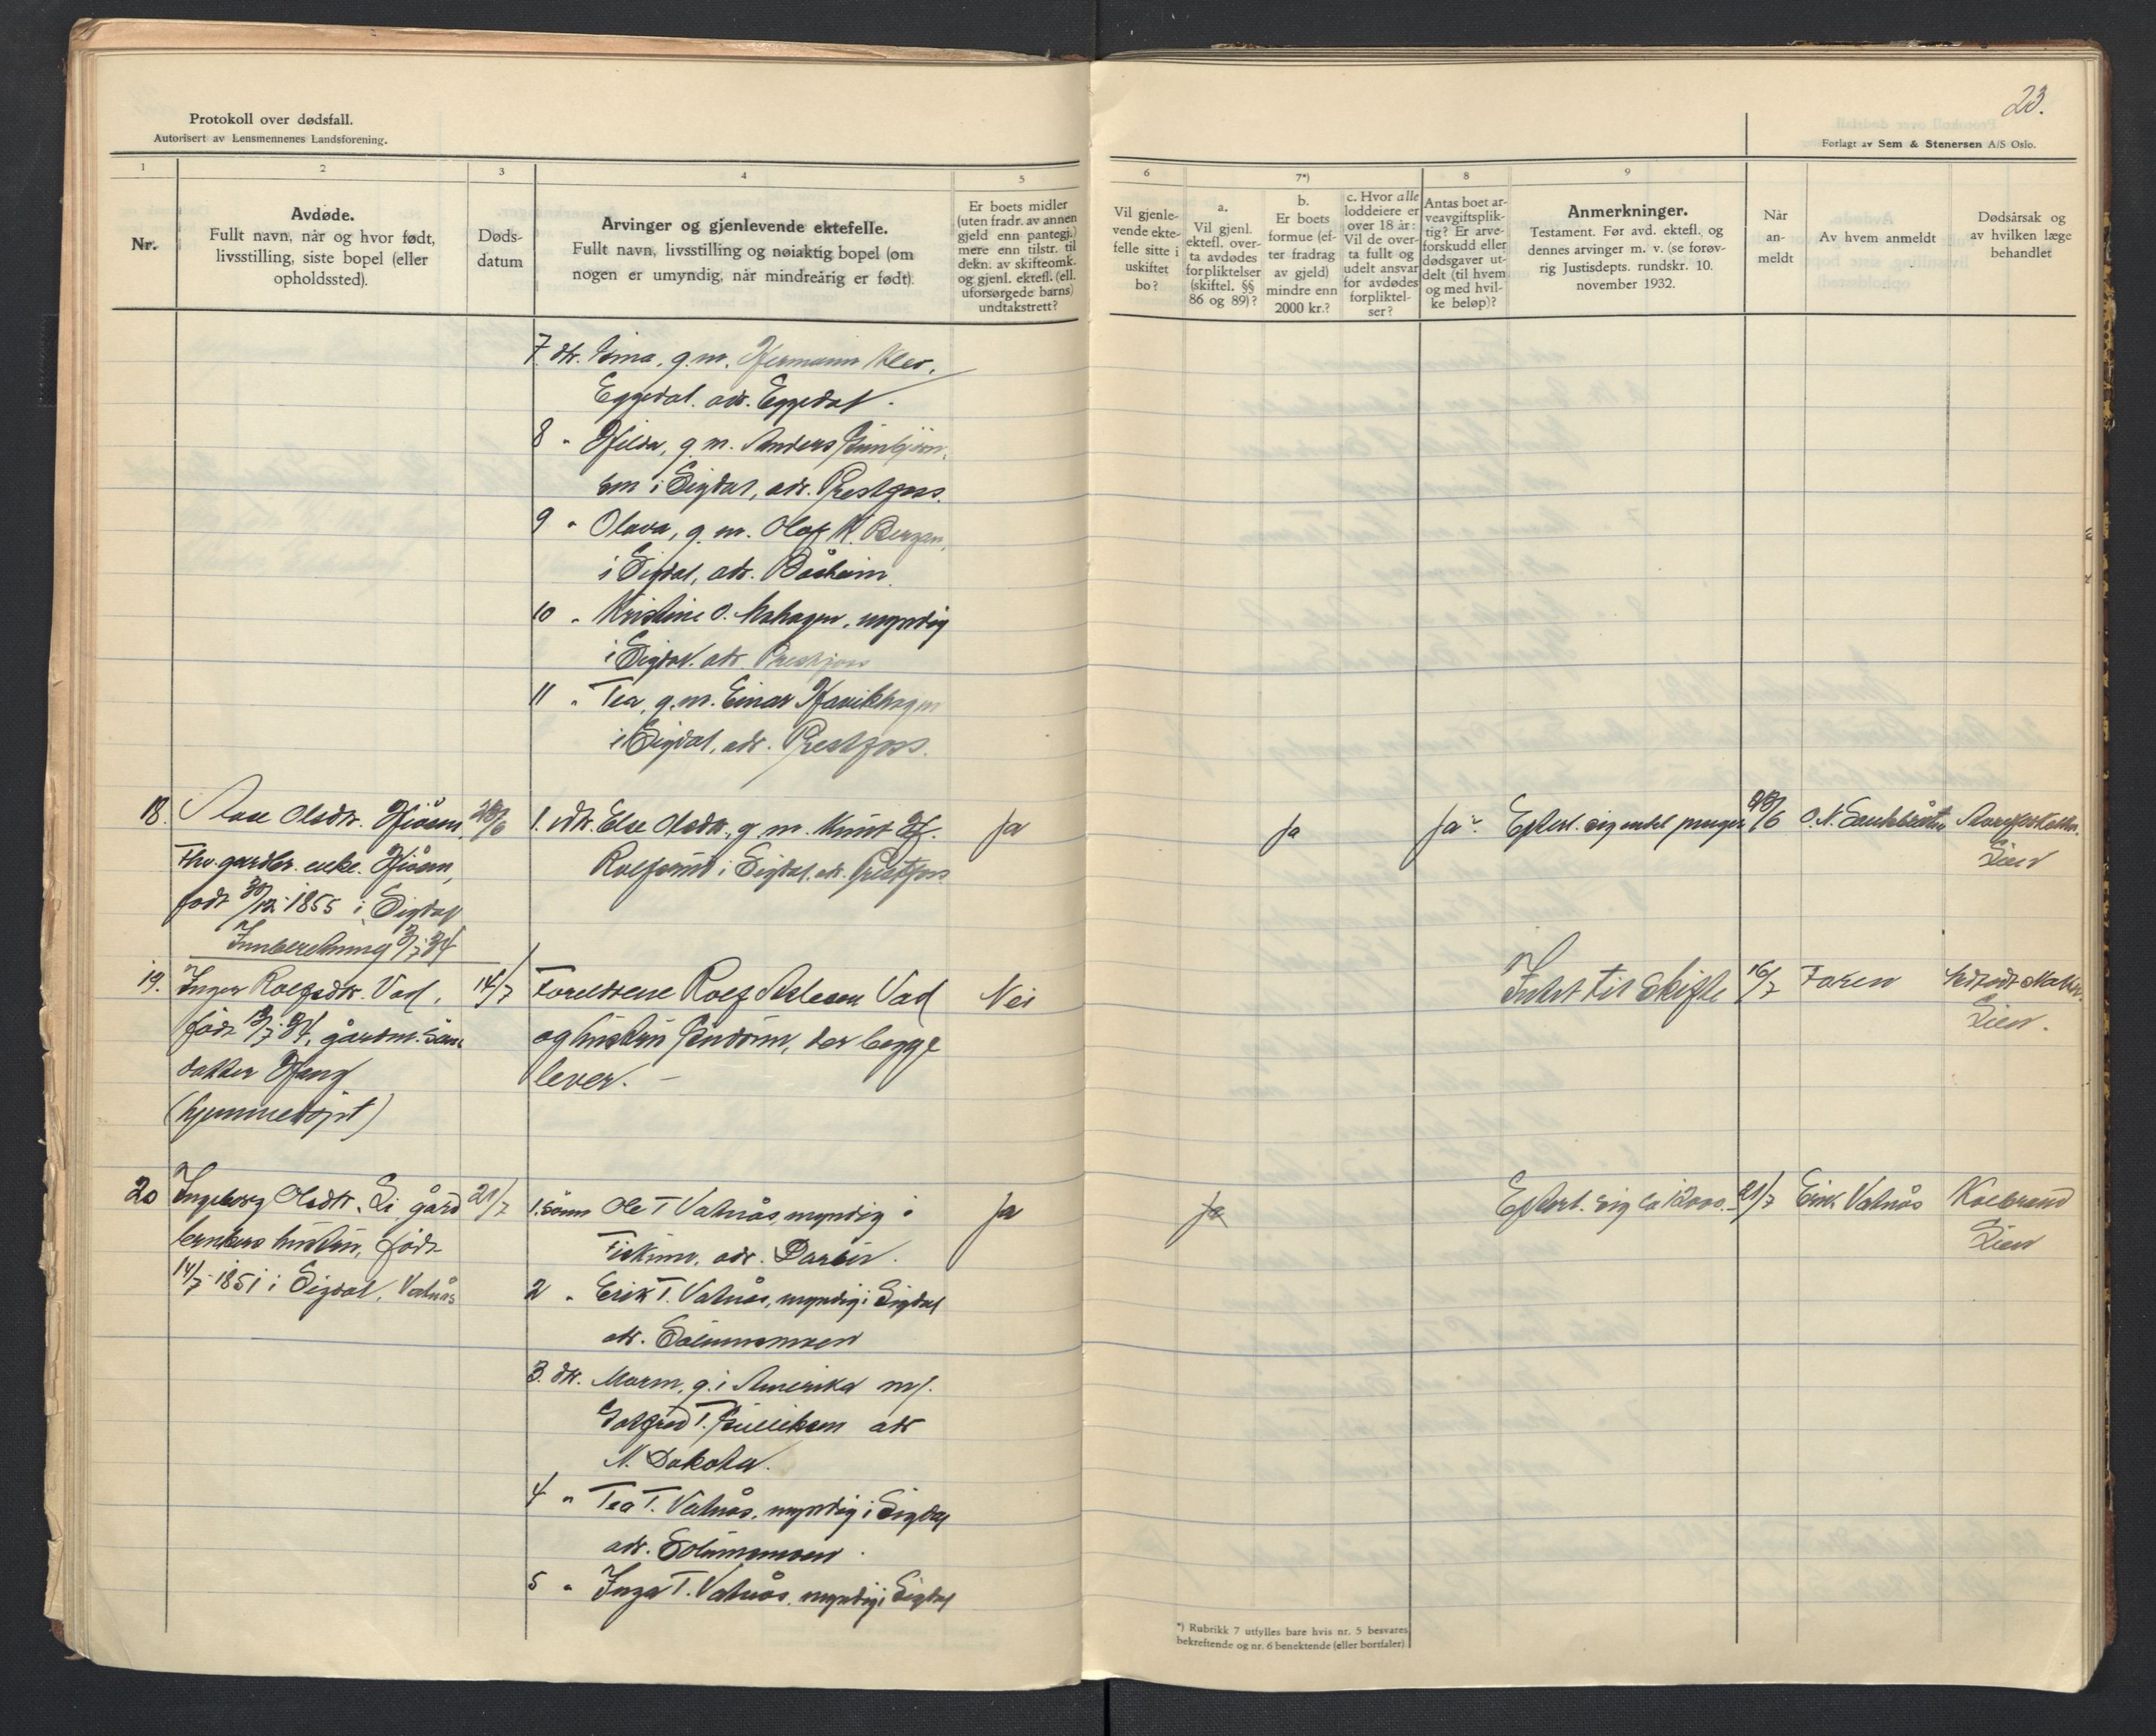 23.
Protokoll over dødsfall.
Autorisert av Lensmennenes Landsforening.
Forlagt av Sem & Stenersen A/S Oslo.
1 2 3 4 5 6 7*) 8 9
Nr.
Avdøde.
Fullt navn, når og hvor født,
livsstilling, siste bopel (eller
opholdssted).
Døds-
datum
Arvinger og gjenlevende ektefelle.
Fullt navn, livsstilling og nøiaktig bopel (om
nogen er umyndig, når mindreårig er født).
Er boets midler
(uten fradr. av annen
gjeld enn pantegj.)
mere enn tilstr. til
dekn. av skifteomk.
og gjenl. ektefl. (ell.
uforsørgede barns)
undtakstrett?
Vil gjenle-
vende ekte-
felle sitte i
uskiftet
bo?
a.
Vil gjenl.
ektefl. over-
ta avdødes
forpliktelser
(skiftel. §§
86 og 89)?
b.
Er boets
formue (ef-
ter fradrag
av gjeld)
mindre enn
2000 kr.?
c. Hvor alle
loddeiere er
over 18 år:
Vil de over-
ta fullt og
udelt ansvar
for avdødes
forpliktel-
ser?
Antas boet ar-
veavgiftsplik-
tig? Er arve-
forskudd eller
dødsgaver ut-
delt (til hvem
og med hvil-
ke beløp)?
Anmerkninger.
Testament. Før avd. ektefl. og
dennes arvinger m. v. (se forøv-
rig Justisdepts. rundskr. 10.
november 1932.
Når
an-
meldt
Av hvem anmeldt
Dødsårsak og
av hvilken læge
behandlet
7. dtr. g.m. Hermann Klev,
Eggedal. adr. Eggedal.
8 " Hilda, g.m. Anders Gunbjørn-
sen i Sigdal, adr. Prestfoss.
9 " Olava, g.m. Olaf K. Bergan,
i Sigdal, adr. Båsheim
10 " Kristine O. myndig
i Sigdal. adr. Prestfoss
11 " Tea, g.m. Einar Havikhagen
i Sigdal, adr. Prestfoss.
18. Aase Olsdtr. Hiåsen, 28/6 1. dtr. Else Olsdtr., g.m. Knut H. Ja Ja Ja Efterl. sig endel penger 28/6 O.N.
Fhv. gardbr. enke. Hiåsen, Rolfsrud i Sigdal. adr. Prestfoss Lien
født 30/12-1855 i Sigdal
Innberetning 3/7-34
19. Inger Rolfsdtr. Vad, 14/7 Foreldrene Rolf Aslesen Vad Nei Intet til skifte 16/7 Faren
født 13/7-34, gårdm. Lien.
datter og hustru Gudrun, der begge
(hjemmedøpt) lever. —
20 Ingeborg Olsdtr. Li gård 21/7 1. sønn Ole T Vatnås, myndig i Ja Ja Efterl. sig ca 12000.- 21/7 Erik Vatnås Kolbrand
brukers hustru, født Fiskum, adr. Darbu. Lien
14/7-1851 i Sigdal, Vatnås
2 " Erik T. Vatnås, myndig i Sigdal
adr. Solumsmoen
3. dtr. Maren, g. i Amerika m/.
T. Gulliksen adr
N. Dakota.
4 " Tea T. Vatnås, myndig i Sigdal
adr. Solumsmoen.
5 " Inga T. Vatnås, myndig i Sigdal
*) Rubrikk 7 utfylles bare hvis nr. 5 besvares
bekreftende og nr. 6 benektende (eller bortfaler)